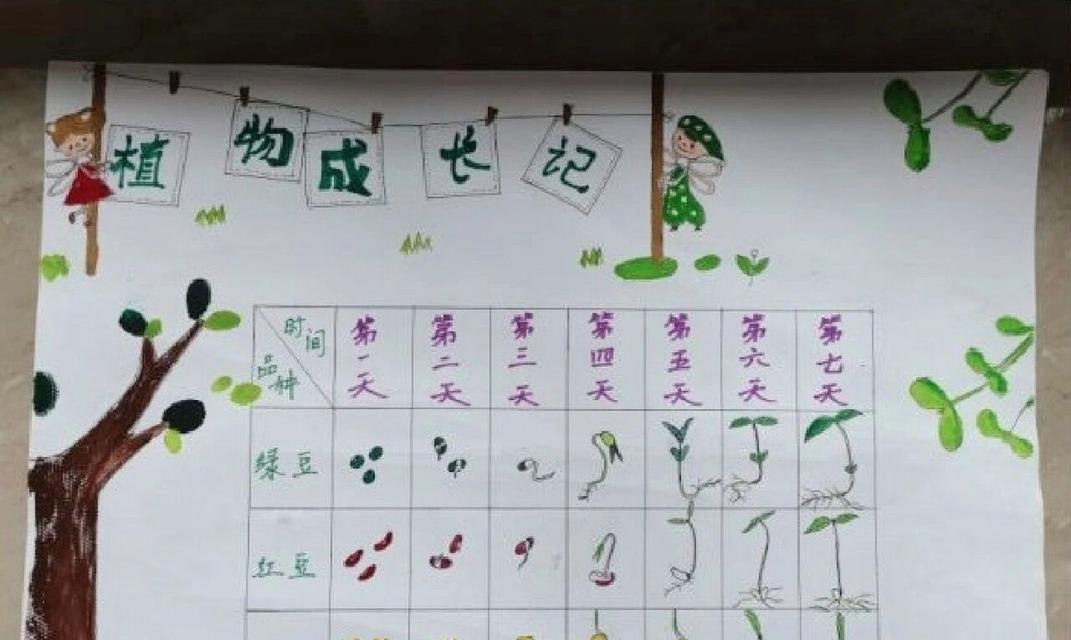 植物成长记
时间 第一天 第二天 第三天 第四天 第五天 第六天 第七天
品种
绿豆
红豆